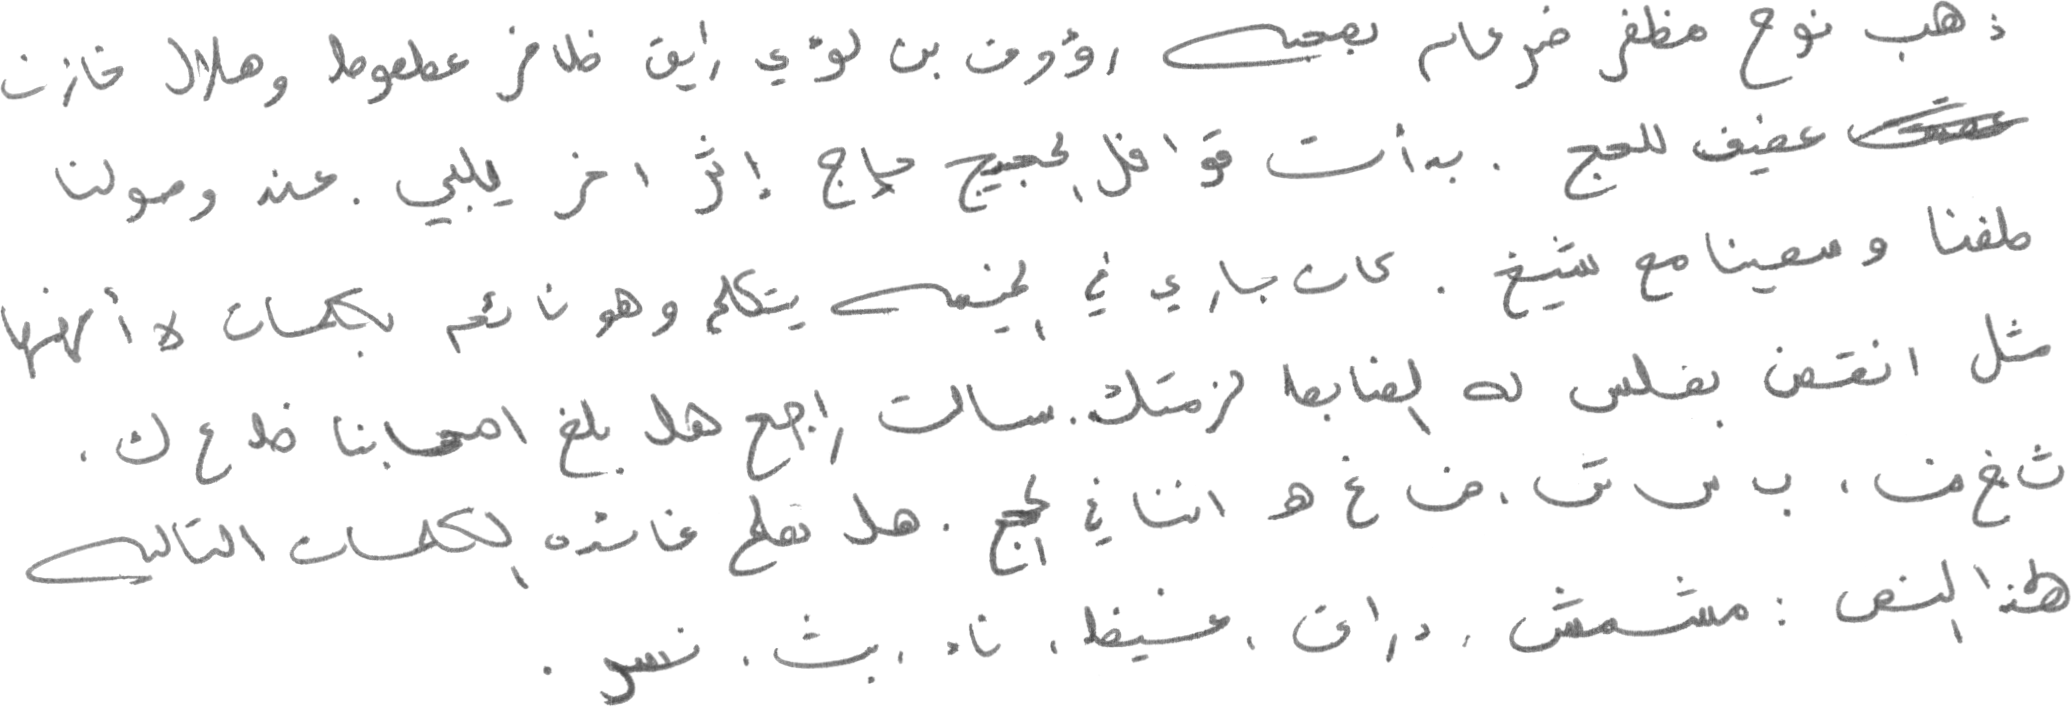 ذهب نوح مظفر ضرغام بصحبه رؤوف بن لؤي رايق ظافر عطعوط وهلال خازن
عفيف للحج . بدأت قوافل الحجيج حاج إثر اخر يلبي . عند وصولنا
طفنا وسعينا مع شيخ . كان جاري في الخيمه يتكلم وهو نائم بكلمات لا أفهمها
مثل انقض بغلس له الضابط لزمتك . سالت راجح هل بلغ اصحابنا ظ ط ع ك .
ث غ ض ، ب س ش ، ض غ ه اننا في الحج . هل تعلم فائده الكلمات التاليه
لهذا النص : مشمش ، دراق ، غيظ ، ناء ، بث ، نسر .